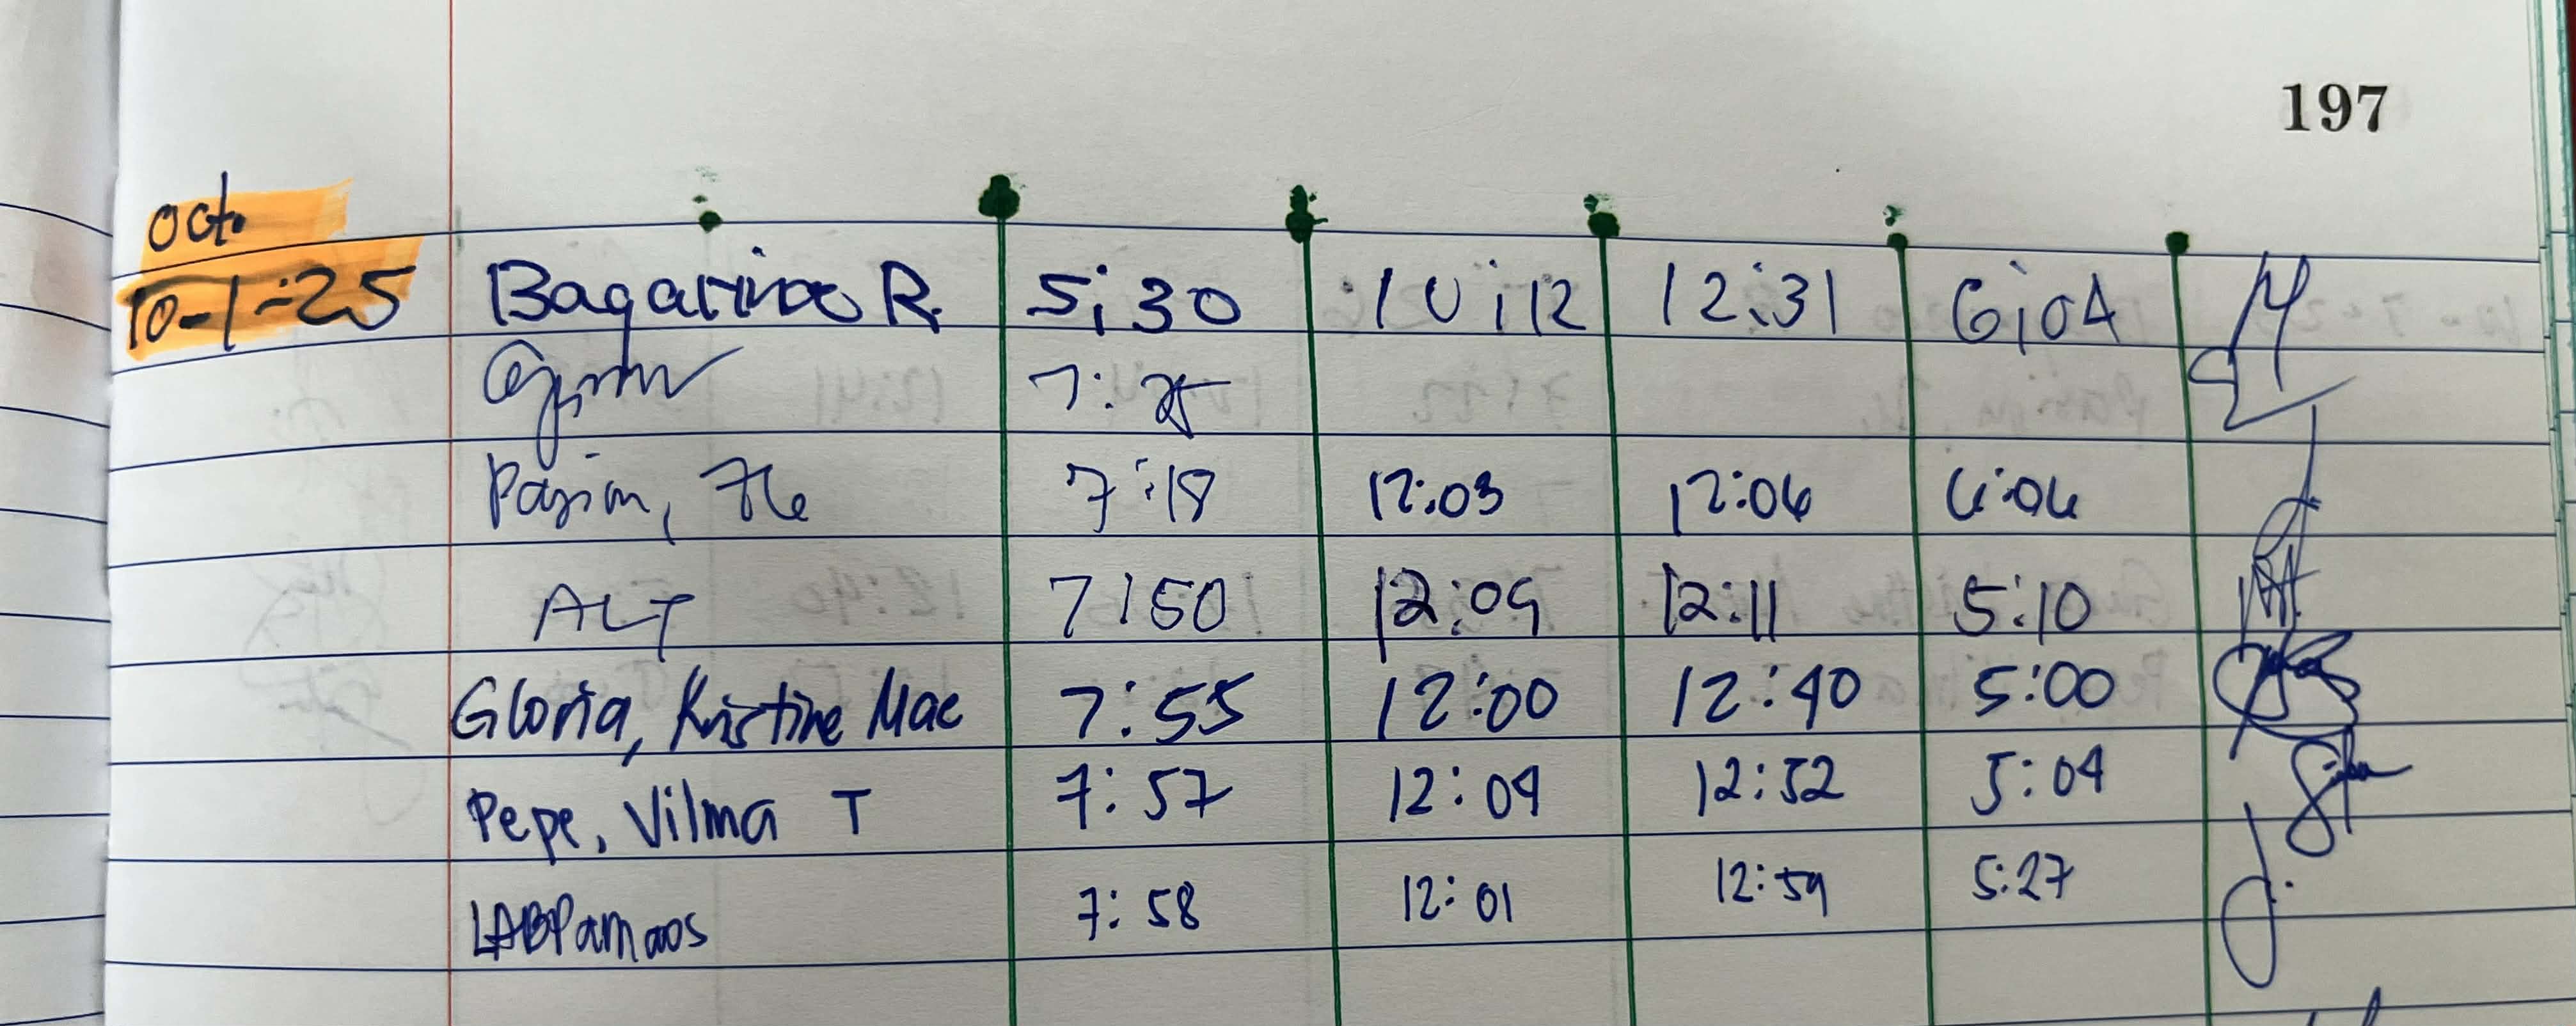 197
Oct.
10-1-25 Bagarinao R. 5:30 10:12 12:31 6:04
7:25
7:18 12:03 12:06
ALT 7:50 12:09 12:11 5:10
Gloria, Kristine Mae 7:55 12:00 12:40 5:00
Pepe, Vilma T 7:57 12:04 12:52 5:04
LABPamaos 7:58 12:01 12:59 5:27